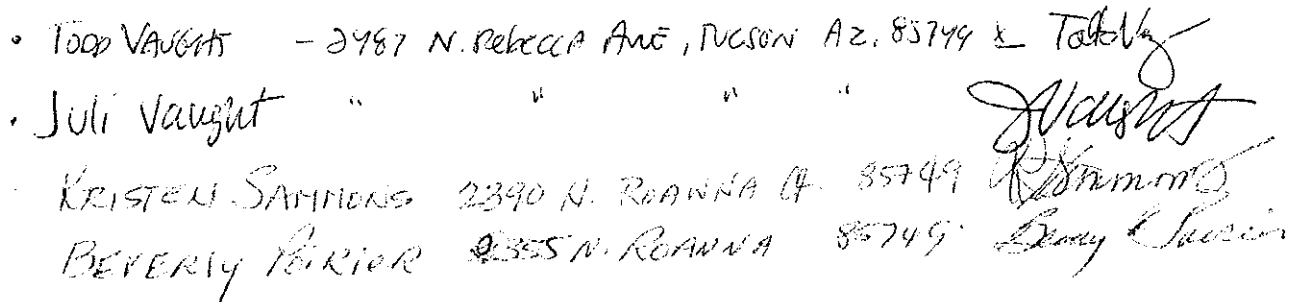 • TODD VAUGHT - 2487 N. Rebecca AVE, TUCSON AZ. 85749 x
• Juli Vaught " " " " JVaught
KRISTEN SAMMONS 2390 N. ROANNA Ct. 85749 KSammons
BEVERLY POIRIER 2355 N. ROANNA 85749